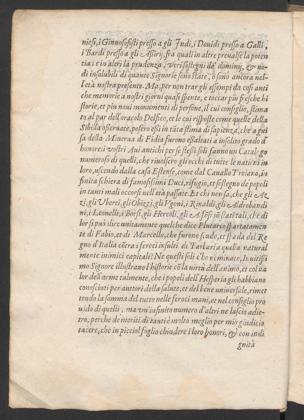 niesi, i Ginnosofisti presso a gli Indi, i Druidi presso a Galli,
i Bardi presso a gli Assirij, fra quali in altre prevalse la poten
tia; e in altri la prudenza, veri sostegni de' dominij, & no-
di insolubili di quante Signorie sono state, ò sono ancora nel-
l'età nostra presente. Ma, per non trar gli essempi da così anti
che memorie a nostri giorni quasi spente, e toccar più fresche hi
storie, et più noui monimenti di persone, il cui consiglio, stima
to al par dell'oracolo Delfico, et le cui risposte come quelle della
Sibilla osseruate, posero essi in tāta stima di sapienza, che a gui
sa della Minerua di Fidia furono essaltati a insolito grado d'
honori: i vostri Aui antichi per se stessi soli fanno un Catal-go
numeroso di quelli, che riuolsero gli occhi di tutte le nationi in
loro, uscendo dalla casa Estense, come dal Cauallo Troiano, in
finita schiera di famosissimi Duci, rifugio, et sostegno de' popoli
in tanti mali occorsi nell'età passate. Et chi non sà, che gli Az
zi, gli Vberti, gli Obizzi, gli Vgoni, i Rinaldi, gli Aldrobandi
ni, i Leonelli, i Borsi, gli Hercoli, gli Alfonsi son stati tali, che di
lor si può dire unitamente quel che dice Plutarco appartatamen
te di Fabio, et di Marcello, che furono scudo, et spada del Re
gno d'Italia cōtra i feroci insulti de' Barbari a quella natural
mente inimici capitali? Ne questi soli che ò nominate, Inuitissi
mo Signore illustrano l'historie cō la virtù dell'animo, et col ua
lor dell'arme talmente, che i popoli dell'Hesperia gli habbiano
conosciuti per auttori della salute, et del bene uniuersale, rimet
tendo la somma del tutto nelle feroci mani, et nel consiglio pro
uido di quelli, ma un'infinito numero d'altri ne lascio adie-
tro, perche de meriti di tanti è molto meglio per mio giudicio
tacere, che in picciol foglio chiudere i loro honori, & con indi
gnità